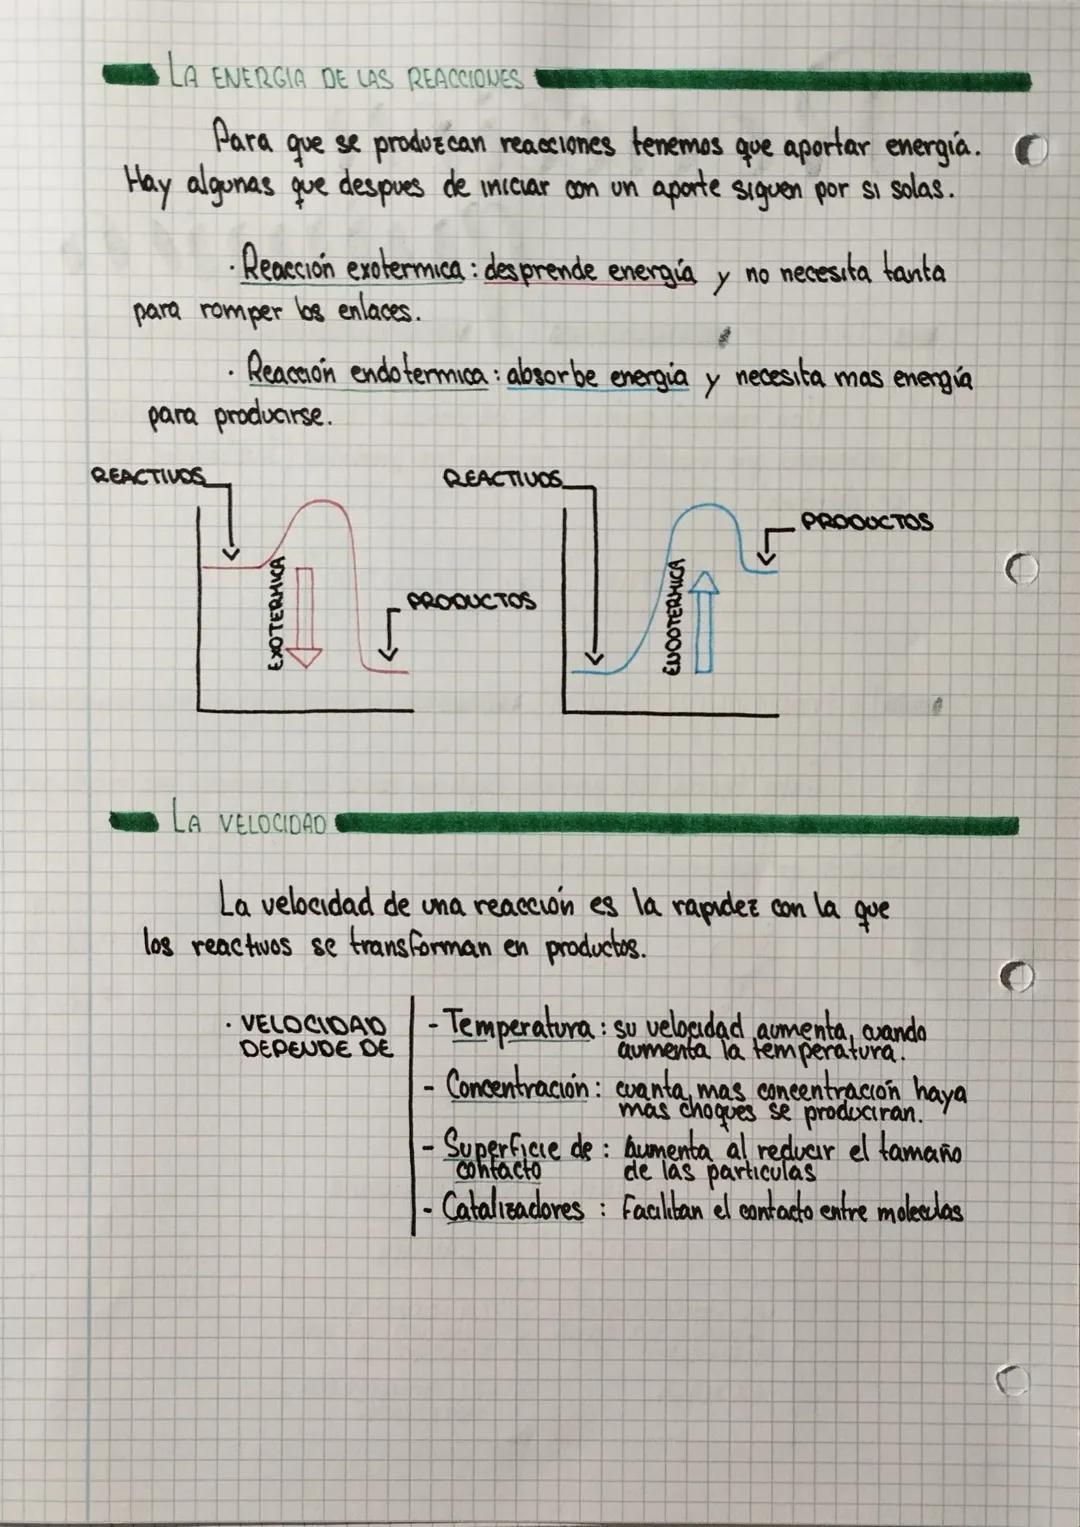 LA ENERGIA DE LAS REACCIONES
Para que se produzcan reacciones tenemos que aportar energía.
Hay algunas que despues de iniciar con un aporte siguen por si solas.
· Reacción exotermica: desprende energía y no necesita tanta
para romper los enlaces.
· Reacción endotermica: absorbe energia y necesita mas energía
para producirse.
REACTIVOS
EXOTERMICA
PRODUCTOS
REACTIVOS
ENDOTERMICA
PRODUCTOS
LA VELOCIDAD
La velocidad de una reacción es la rapidez con la que
los reactivos se transforman en productos.
· VELOCIDAD
DEPENDE DE
- Temperatura: su velocidad aumenta, cuando
aumenta la temperatura.
- Concentración: cuanta mas concentración haya
mas choques se produciran.
- Superficie de : Aumenta al reducir el tamaño
contacto de las particulas
- Catalizadores : Facilitan el contacto entre moleculas